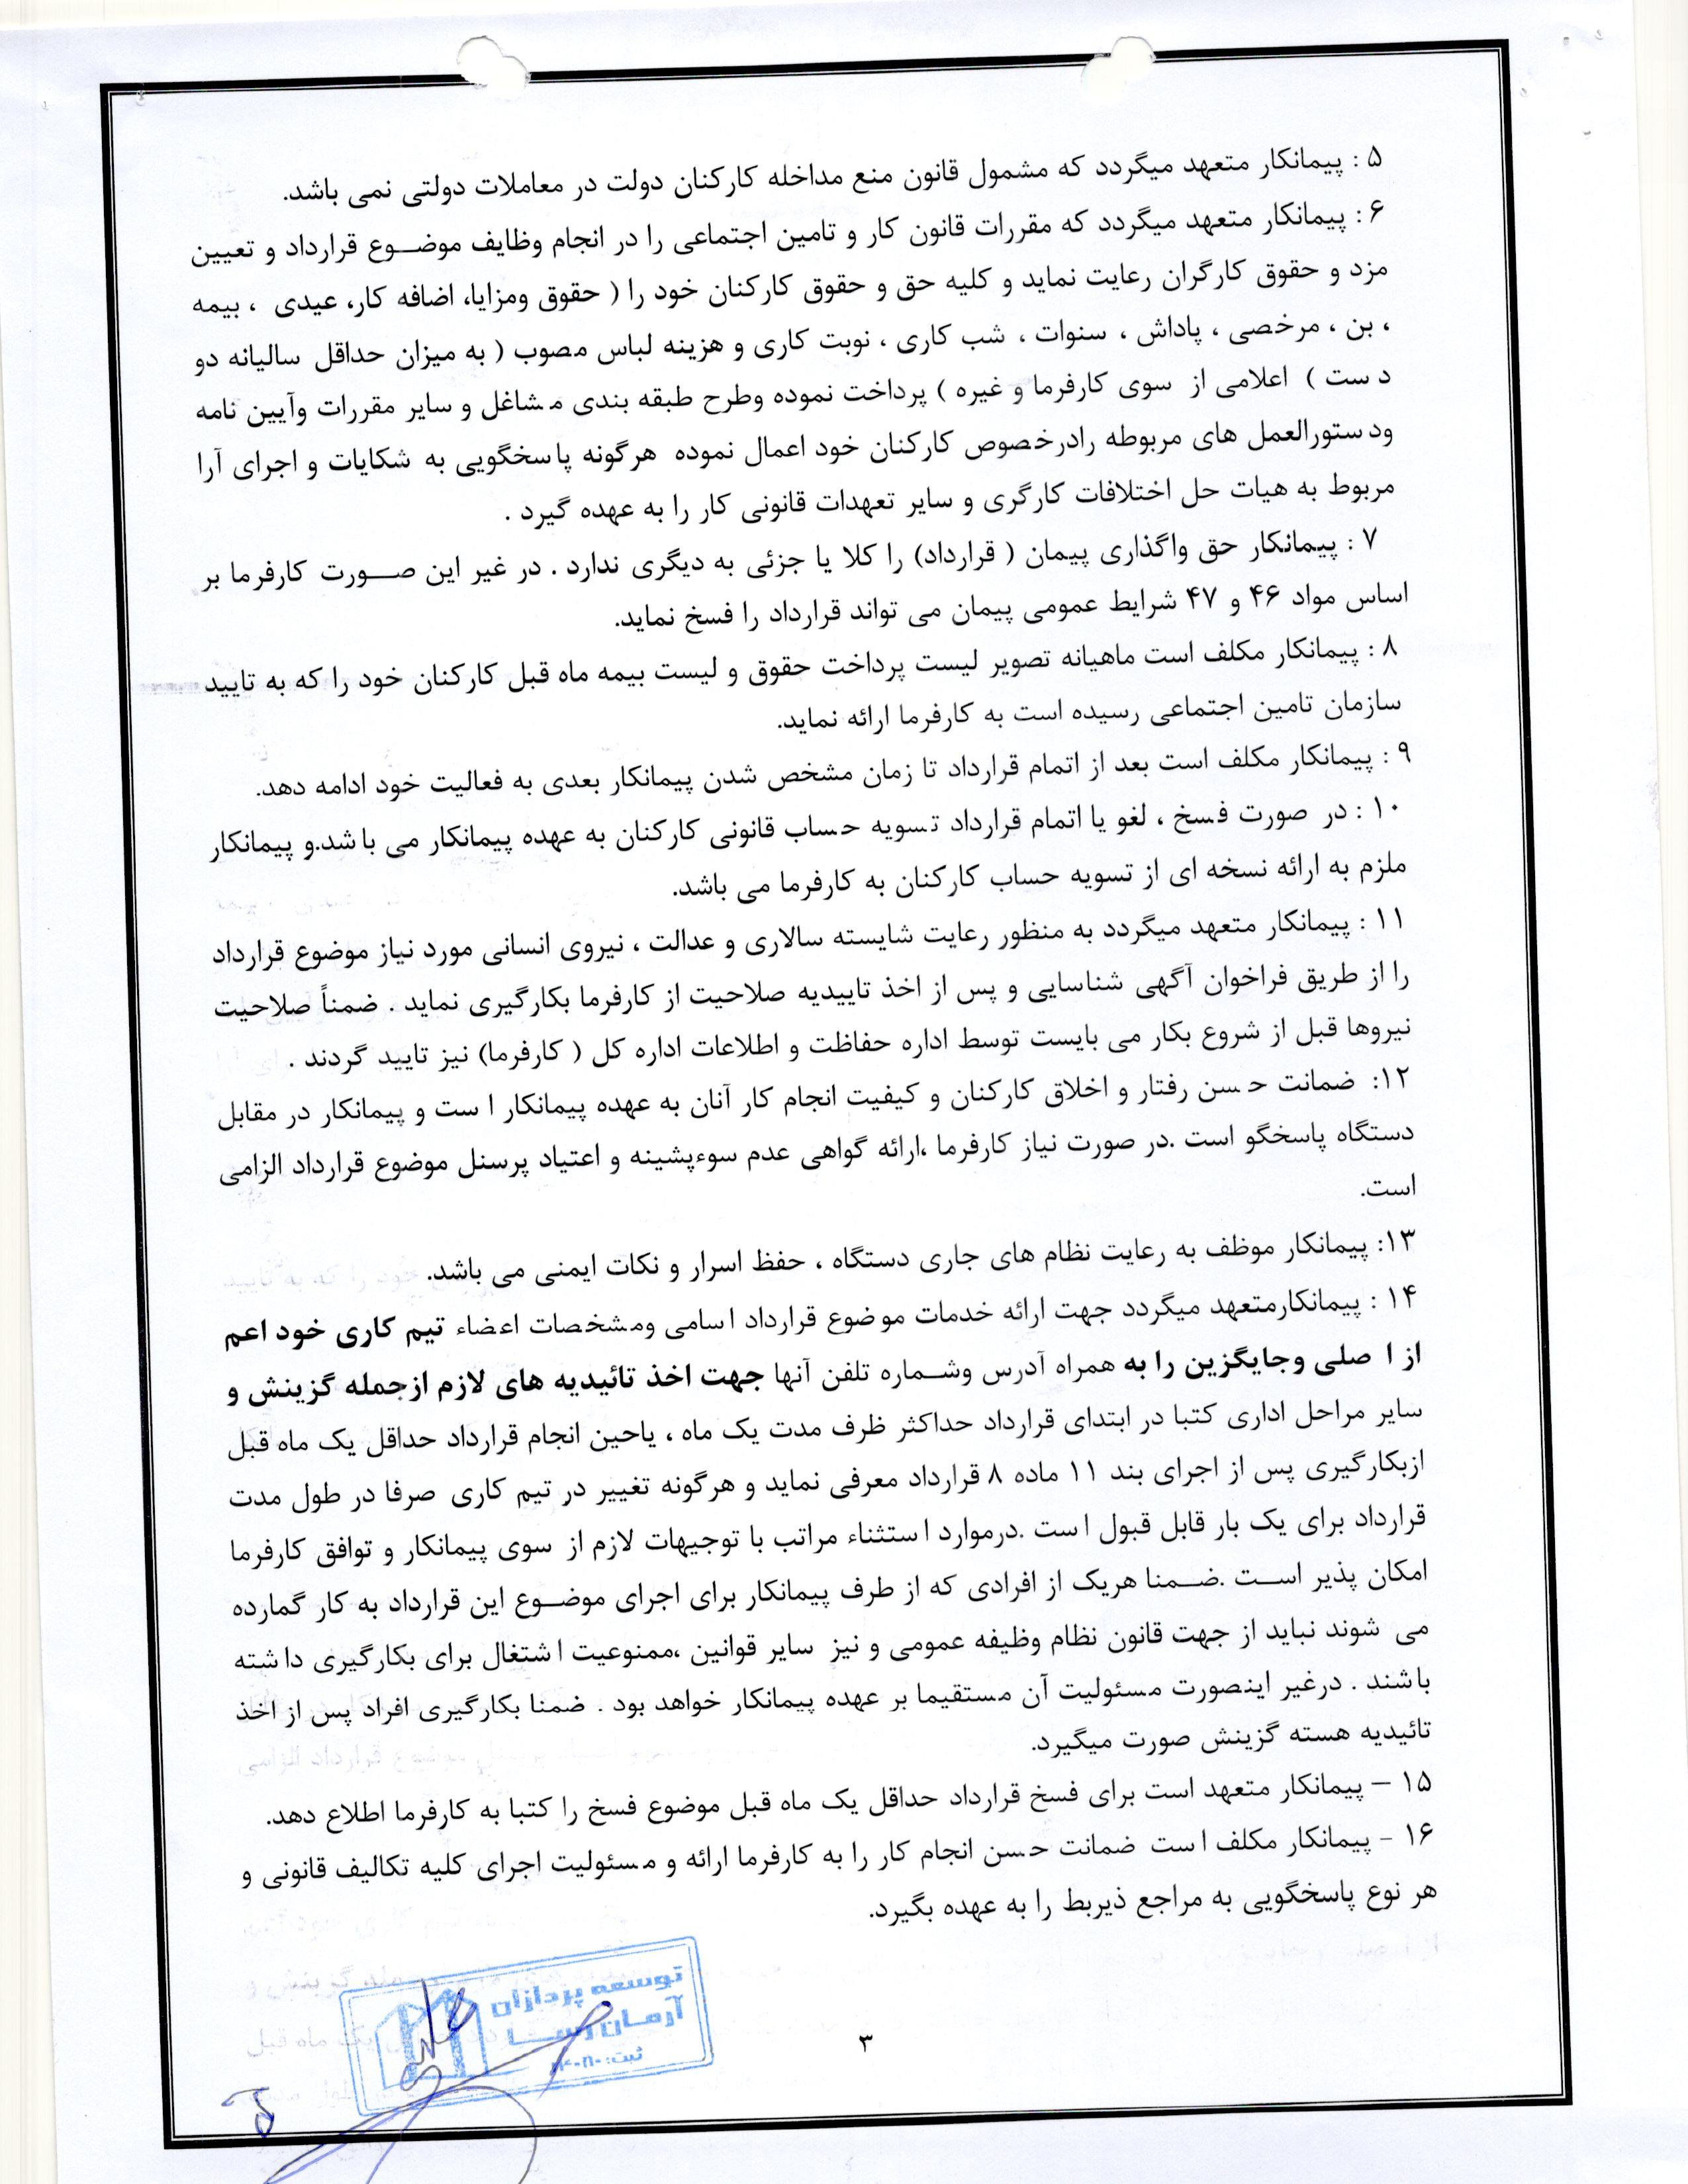 ۵ : پیمانکار متعهد میگردد که مشمول قانون منع مداخله کارکنان دولت در معاملات دولتی نمی باشد.
۶ : پیمانکار متعهد میگردد که مقررات قانون کار و تامین اجتماعی را در انجام وظایف موضوع قرارداد و تعیین
مزد و حقوق کارگران رعایت نماید و کلیه حق و حقوق کارکنان خود را ( حقوق ومزایا، اضافه کار، عیدی ، بیمه
، بن ، مرخصی ، پاداش ، سنوات ، شب کاری ، نوبت کاری و هزینه لباس مصوب ( به میزان حداقل سالیانه دو
دست ) اعلامی از سوی کارفرما و غیره ) پرداخت نموده وطرح طبقه بندی مشاغل و سایر مقررات وآیین نامه
ودستورالعمل های مربوطه رادرخصوص کارکنان خود اعمال نموده هرگونه پاسخگویی به شکایات و اجرای آرا
مربوط به هیات حل اختلافات کارگری و سایر تعهدات قانونی کار را به عهده گیرد .
۷ : پیمانکار حق واگذاری پیمان ( قرارداد) را کلا یا جزئی به دیگری ندارد . در غیر این صورت کارفرما بر
اساس مواد ۴۶ و ۴۷ شرایط عمومی پیمان می تواند قرارداد را فسخ نماید.
۸ : پیمانکار مکلف است ماهیانه تصویر لیست پرداخت حقوق و لیست بیمه ماه قبل کارکنان خود را که به تایید
سازمان تامین اجتماعی رسیده است به کارفرما ارائه نماید.
۹ : پیمانکار مکلف است بعد از اتمام قرارداد تا زمان مشخص شدن پیمانکار بعدی به فعالیت خود ادامه دهد.
۱۰ : در صورت فسخ ، لغو یا اتمام قرارداد تسویه حساب قانونی کارکنان به عهده پیمانکار می باشد.و پیمانکار
ملزم به ارائه نسخه ای از تسویه حساب کارکنان به کارفرما می باشد.
۱۱ : پیمانکار متعهد میگردد به منظور رعایت شایسته سالاری و عدالت ، نیروی انسانی مورد نیاز موضوع قرارداد
را از طریق فراخوان آگهی شناسایی و پس از اخذ تاییدیه صلاحیت از کارفرما بکارگیری نماید . ضمناً صلاحیت
نیروها قبل از شروع بکار می بایست توسط اداره حفاظت و اطلاعات اداره کل ( کارفرما) نیز تایید گردند .
۱۲: ضمانت حسن رفتار و اخلاق کارکنان و کیفیت انجام کار آنان به عهده پیمانکار است و پیمانکار در مقابل
دستگاه پاسخگو است .در صورت نیاز کارفرما ،ارائه گواهی عدم سوءپشینه و اعتیاد پرسنل موضوع قرارداد الزامی
است.
۱۳: پیمانکار موظف به رعایت نظام های جاری دستگاه ، حفظ اسرار و نکات ایمنی می باشد.
۱۴ : پیمانکارمتعهد میگردد جهت ارائه خدمات موضوع قرارداد اسامی ومشخصات اعضاء تیم کاری خود اعم
از اصلی وجایگزین را به همراه آدرس وشماره تلفن آنها جهت اخذ تائیدیه های لازم ازجمله گزینش و
سایر مراحل اداری کتبا در ابتدای قرارداد حداکثر ظرف مدت یک ماه ، یاحین انجام قرارداد حداقل یک ماه قبل
ازبکارگیری پس از اجرای بند ۱۱ ماده ۸ قرارداد معرفی نماید و هرگونه تغییر در تیم کاری صرفا در طول مدت
قرارداد برای یک بار قابل قبول است .درموارد استثناء مراتب با توجیهات لازم از سوی پیمانکار و توافق کارفرما
امکان پذیر است .ضمنا هریک از افرادی که از طرف پیمانکار برای اجرای موضوع این قرارداد به کار گمارده
می شوند نباید از جهت قانون نظام وظیفه عمومی و نیز سایر قوانین ،ممنوعیت اشتغال برای بکارگیری داشته
باشند . درغیر اینصورت مسئولیت آن مستقیما بر عهده پیمانکار خواهد بود . ضمنا بکارگیری افراد پس از اخذ
تائیدیه هسته گزینش صورت میگیرد.
۱۵ – پیمانکار متعهد است برای فسخ قرارداد حداقل یک ماه قبل موضوع فسخ را کتبا به کارفرما اطلاع دهد.
۱۶ - پیمانکار مکلف است ضمانت حسن انجام کار را به کارفرما ارائه و مسئولیت اجرای کلیه تکالیف قانونی و
هر نوع پاسخگویی به مراجع ذیربط را به عهده بگیرد.
توسعه پردازان
آرمان
ثبت:
۳